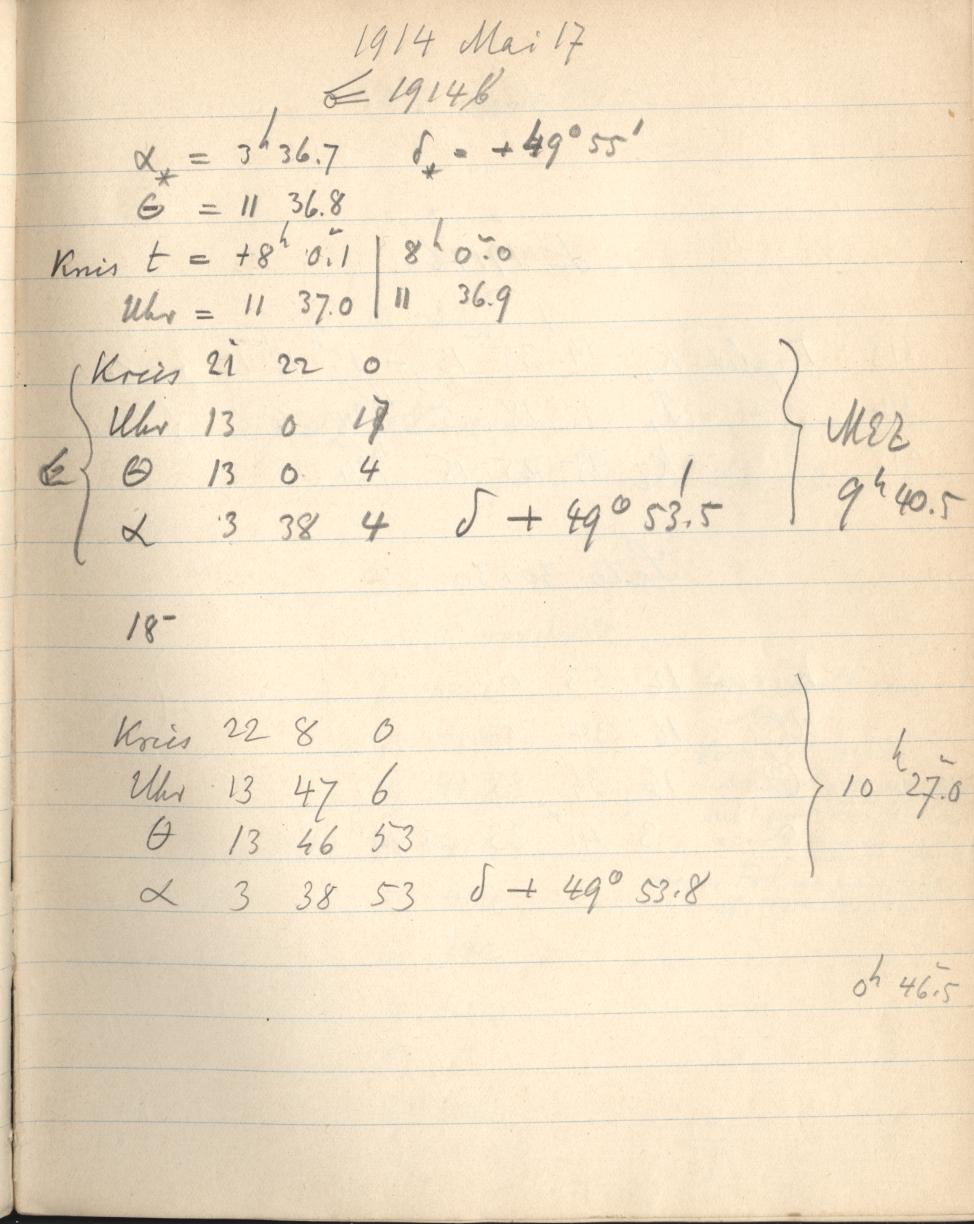 1914 Mai 17
☄ 1914b
α* = 3ʰ 36.7 δ* = +49° 55'
θ = 11 36.8
Kreis t = +8ʰ 0.1 | 8ʰ 0.0
Uhr = 11 37.0 | 11 36.9
Kreis 21 22 0
Uhr 13 0 17
☄ θ 13 0 4
α 3 38 4 δ + 49° 53.'5
MEZ
9ʰ 40.5
18-
Kreis 22 8 0
Uhr 13 47 6
θ 13 46 53
α 3 38 53 δ + 49° 53.8
10ʰ 27.0
0ʰ 46.5